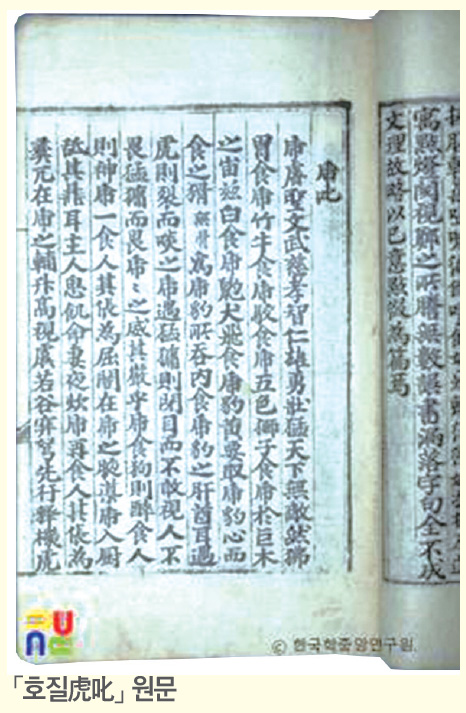 寫點燈閱視鄭之所謄無數誤書漏落字句全不成
文理故略以己意點綴為篇焉
虎叱
虎睿聖文武慈孝智仁雄勇壯猛天下無敵然狒
胃食虎竹牛食虎駮食虎五色獅子食虎於巨木
之宙玆白食虎䶂犬飛食虎豹黃要取虎豹心而
食之猾無骨為虎豹所呑內食虎豹之肝酋耳遇
虎則裂而啖之虎遇猛㺎則閉目而不敢視人不
畏猛㺎而畏虎〻之威其嚴乎虎食狗則醉食人
則神虎一食人其倀為屈閣在虎之腋導虎入厨
舐其鼎耳主人思飢命妻夜炊虎再食人其倀為
彛兀在虎之輔升高視虞若谷穽弩先行釋機虎
© 한국학중앙연구원
「호질虎叱」 원문